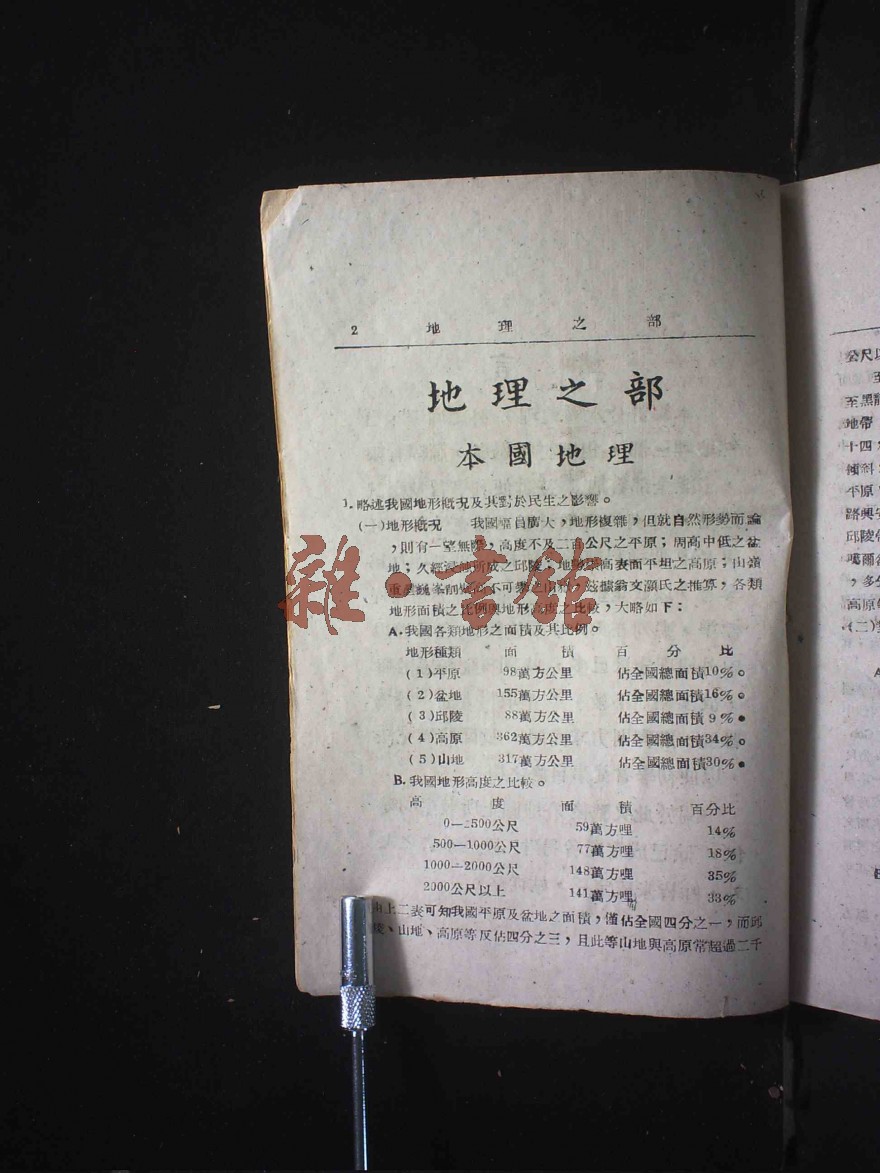 2 地理之部
地理之部
本國地理
1.略述我國地形概況及其對於民生之影響。
(一)地形概況 我國幅員廣大，地形複雜，但就自然形勢而論
，則有一望無際，高度不及二百公尺之平原；周高中低之盆
地；久經 所成之邱陵；地 高表面平坦之高原；山嶺
重 不可攀之山 ，茲據翁文灝氏之推算，各類
地形面積之比例與地形高度之比較，大略如下：
A.我國各類地形之面積及其比例。
地形種類 面積 百分比
(1)平原 98萬方公里 佔全國總面積10%。
(2)盆地 155萬方公里 佔全國總面積16%。
(3)邱陵 88萬方公里 佔全國總面積9%●
(4)高原 362萬方公里 佔全國總面積34%。
(5)山地 317萬方公里 佔全國總面積30%●
B.我國地形高度之比較。
高度 面積 百分比
0—500公尺 59萬方哩 14%
500—1000公尺 77萬方哩 18%
1000—2000公尺 148萬方哩 35%
2000公尺以上 141萬方哩 33%
由上二表可知我國平原及盆地之面積，僅佔全國四分之一，而邱
陵、山地、高原等反佔四分之三，且此等山地與高原常超過二千
公尺以
至
至黑龍
地帶
十四
傾斜
平原
踏興安
邱陵
噶爾
，多
高原
(二)
雜·書館